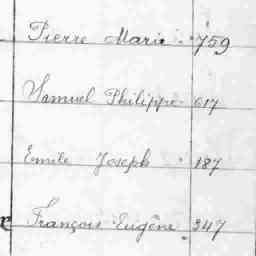 Pierre Marie 759
Samuel Philippe 617
Emile Joseph 187
François Eugène 347